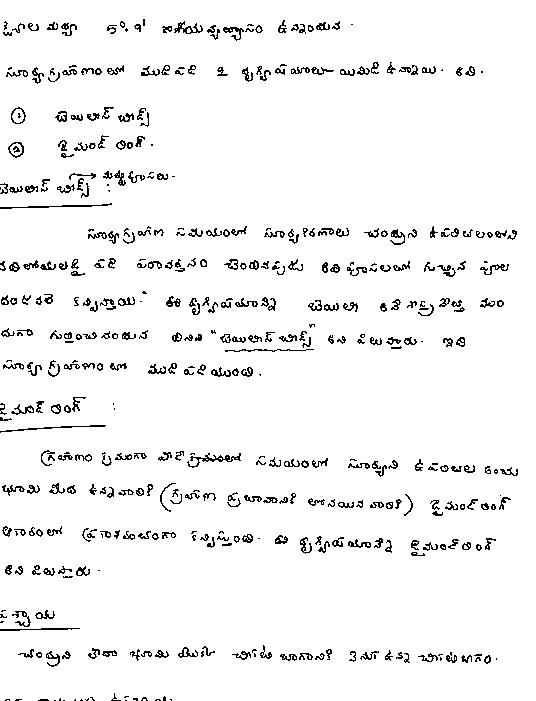 మధ్య 5°, 9' కోణీయ వ్యత్యాసం ఉన్నందున.
సూర్యగ్రహణంలో ముడిపడి 2 దృగ్విషయాలు యిమిడి ఉన్నాయి. అవి.
① బెయిలీస్ బీడ్స్
② డైమండ్ రింగ్.
బెయిలీస్ బీడ్స్ : → ముత్యపూసలు.
సూర్యగ్రహణ సమయంలో సూర్యకిరణాలు చంద్రుని ఉపరితలంలోని
పడి పరావర్తనం చెందినప్పుడు అవి పూసలలో గుచ్చిన పూల
దండవలె కన్పిస్తాయి. ఈ దృగ్విషయాన్ని బెయిలీ అనే శాస్త్రవేత్త ముం
దుగా గుర్తించినందున దీనిని "బెయిలీస్ బీడ్స్" అని పిలుస్తారు. ఇది
సూర్యగ్రహణంలో ముడిపడియుంది.
డైమండ్ రింగ్ :
గ్రహణం క్రమంగా వీడే క్రమంలో సమయంలో సూర్యుని ఉపరితలం నుంచి
భూమి మీద ఉన్నవారికి (గ్రహణ ప్రభావానికి లోనయిన వారికి) డైమండ్ రింగ్
ఆకారంలో ప్రకాశవంతంగా కన్పిస్తుంది. ఈ దృగ్విషయాన్ని డైమండ్ రింగ్
అని పిలుస్తారు.
చంద్రుని లేదా భూమి యొక్క చీకటి భాగానికి వెనుక ఉన్న చీకటిభాగం.